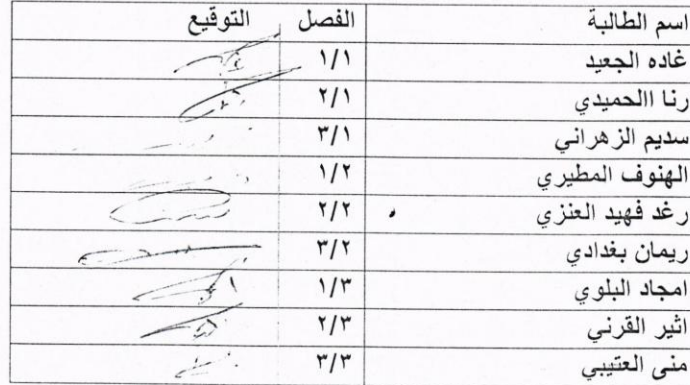 اسم الطالبة الفصل التوقيع
غاده الجعيد ١/١
رنا االحميدي ٢/١
سديم الزهراني ٣/١
الهنوف المطيري ١/٢
رغد فهيد العنزي ٢/٢
ريمان بغدادي ٣/٢
امجاد البلوي ١/٣
اثير القرني ٢/٣
منى العتيبي ٣/٣